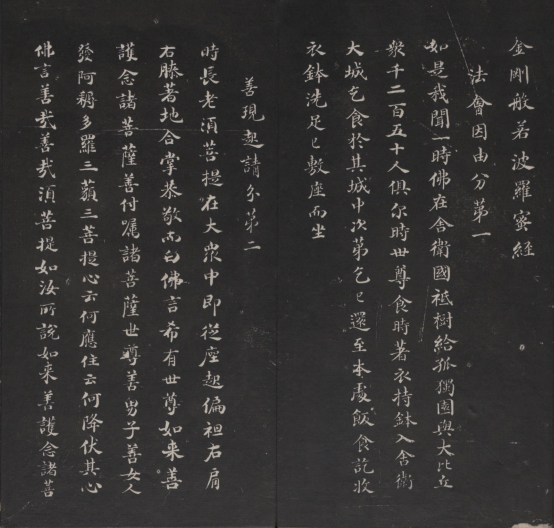 金剛般若波羅蜜經
法會因由分第一
如是我聞一時佛在舍衛國祗樹給孤獨園與大比丘
衆千二百五十人俱尔時世尊食時著衣持鉢入舍衛
大城乞食於其城中次第乞已還至本處飯食訖收
衣鉢洗足已敷座而坐
善現起請分第二
時長老須菩提在大衆中即從座起偏袒右肩
右膝著地合掌恭敬而白佛言希有世尊如来善
護念諸菩薩善付囑諸菩薩世尊善男子善女人
發阿耨多羅三藐三菩提心云何應住云何降伏其心
佛言善哉善哉須菩提如汝所說如来善護念諸菩